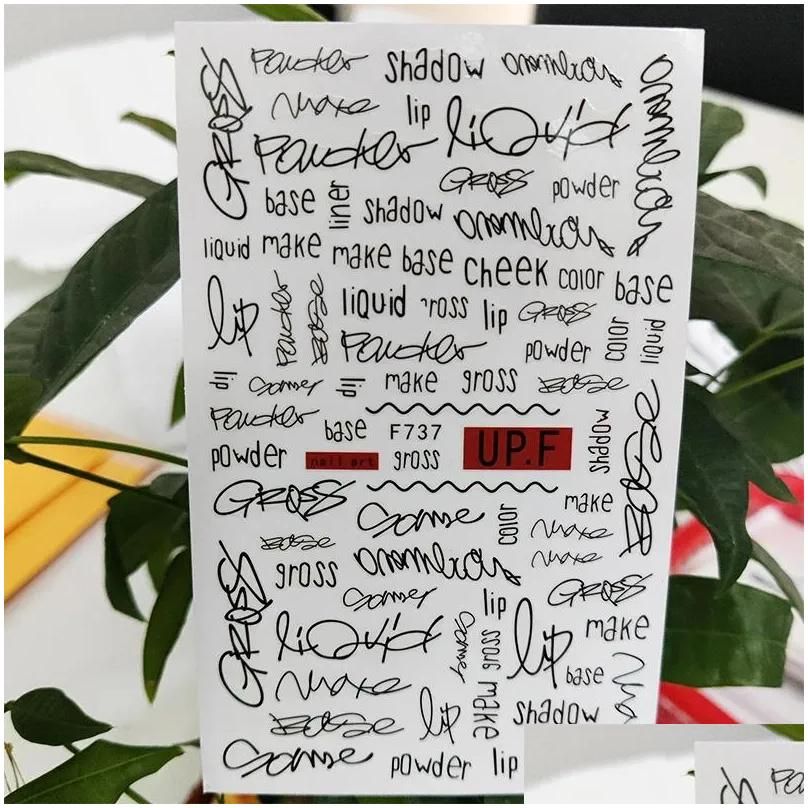 GROSS Powder shadow
Make lip liquid
Powder
GROSS powder
base liner shadow
liquid make make base cheek color base
lip Powder Base liquid ross lip GROSS
Powder powder color liquid
make gross Base
Powder base F737 UP.F shadow
powder nail art gross Base
GROSS Same color make
Base Make
gross Make
GROSS lip GROSS
liquid gross lip make
Make make base
Base lip shadow
Same powder lip